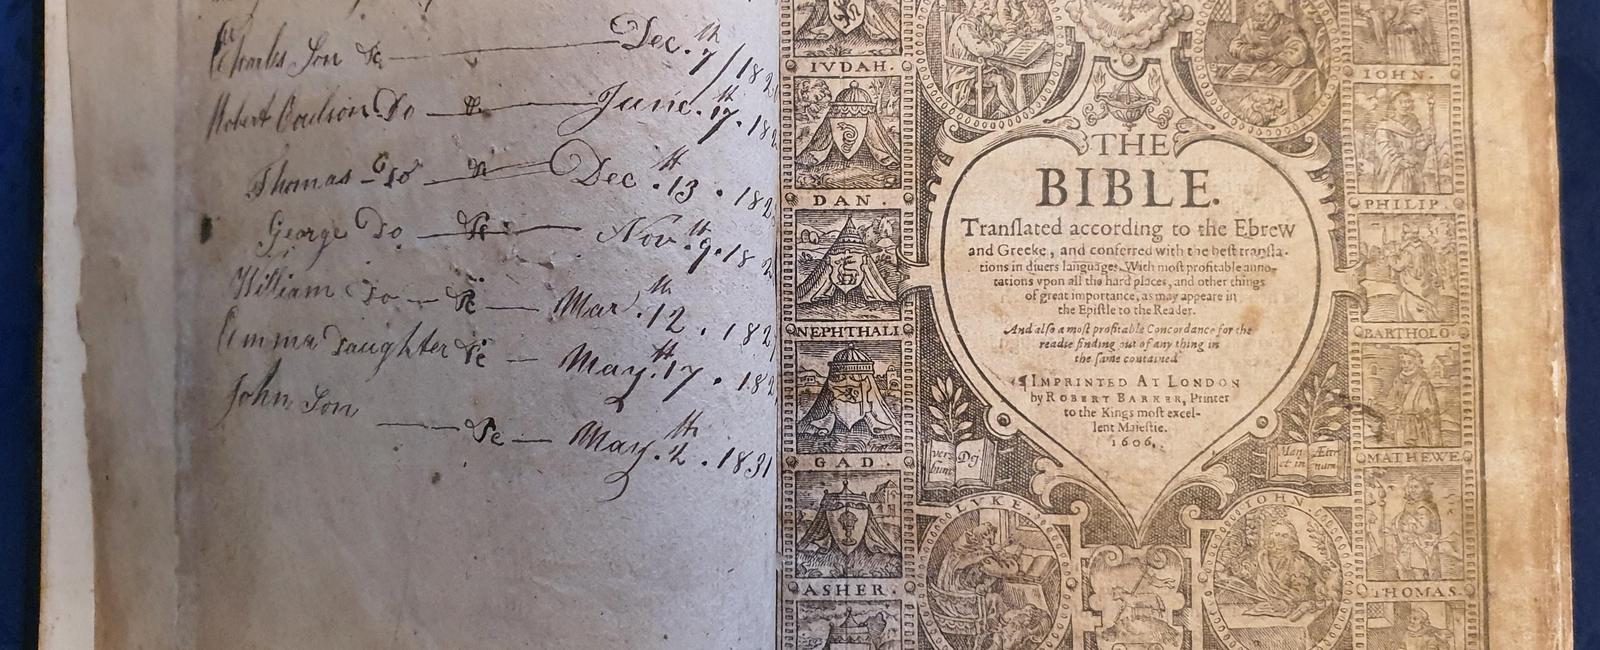 Charles Son &c Dec. 7th / 182
Robert Coulson Do &c June. 17th. 182
Thomas Do &c Dec. 13th. 182
George Do &c Nov. 9th. 182
William Do &c Mar. 12th. 182
Emma Daughter &c May. 17th. 182
John Son &c May. 2th. 1831
IVDAH.
DAN.
NEPHTHALI
GAD.
ASHER.
THE
BIBLE.
Tranſlated according to the Ebrew
and Greeke, and conferred with the beſt tranſla-
tions in diuers languages. With moſt profitable anno-
tations vpon all the hard places, and other things
of great importance, as may appeare in
the Epiſtle to the Reader.
And alſo a moſt profitable Concordance for the
readie finding out of any thing in
the ſame contained
¶ IMPRINTED AT LONDON
by ROBERT BARKER, Printer
to the Kings moſt excel-
lent Maieſtie.
1606.
ver- Dei
bum
Man Æter
et in num
LVKE
IOHN
IOHN.
PHILIP.
BARTHOLO
MATHEWE
THOMAS